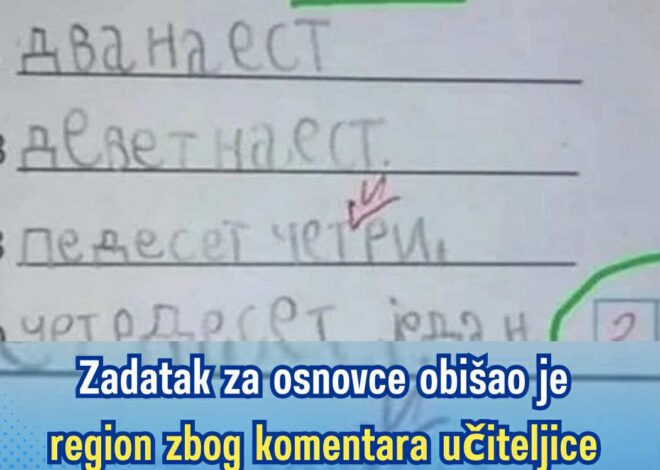 дванаест
деветнаест.
и
педесет четри.
четрдесет један 2
Zadatak za osnovce obišao je
region zbog komentara učiteljice